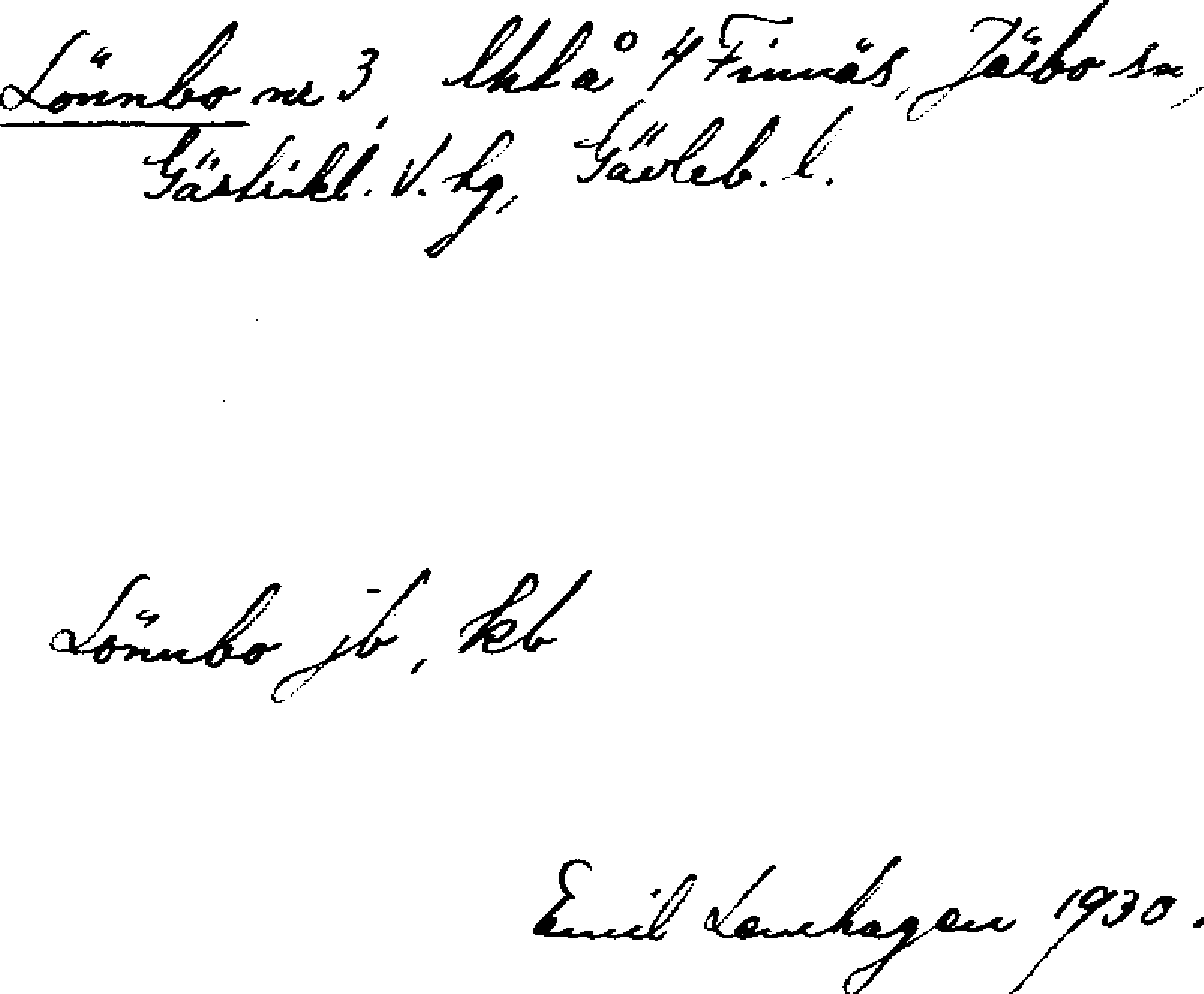 Lönnbo nr 3 lht å 4 Finnäs, Järbo sn,
Gästrikl. V. hg, Gävleb. l.
Lönnbo jb, kb
Emil Lenhagen 1930.